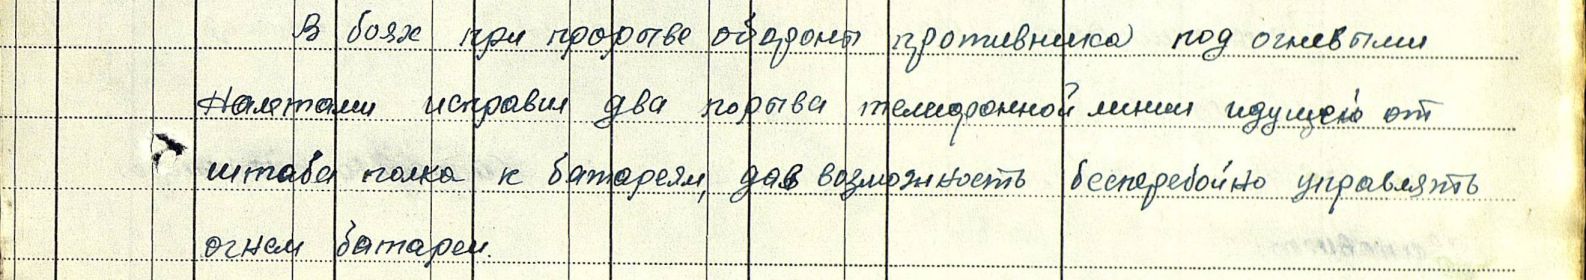 В боях при прорыве обороны противника под огневыми
налетами исправил два порыва телефонной линии идущей от
штаба полка к батареям, дав возможность бесперебойно управлять
огнем батареи.